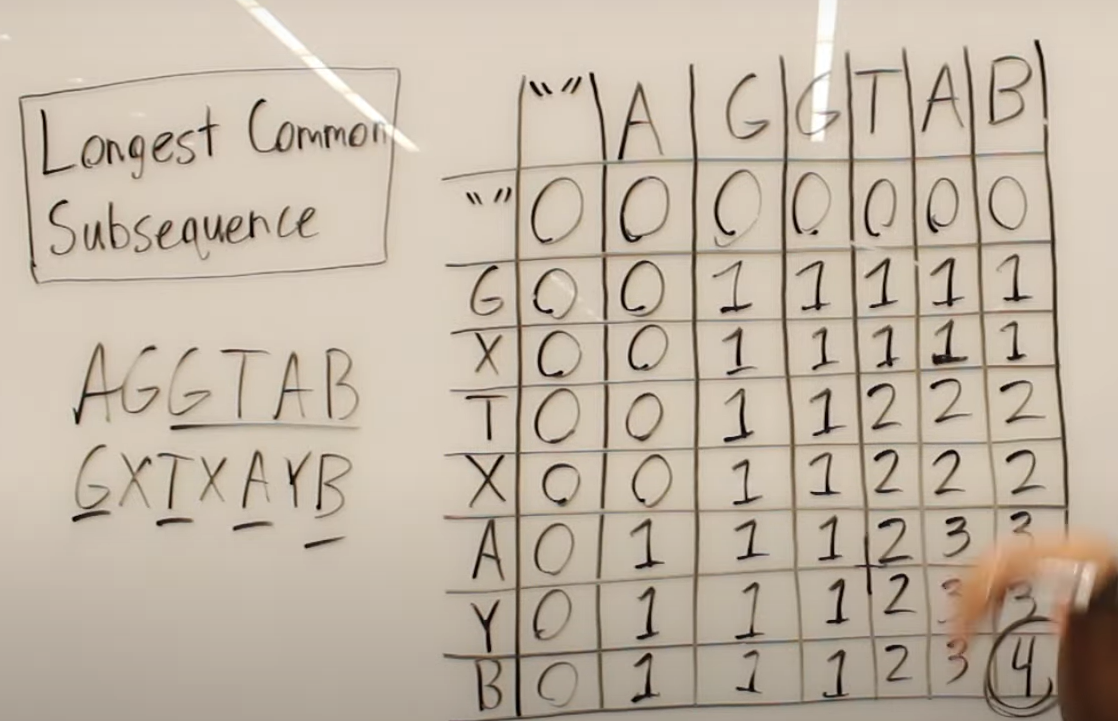 Longest Common
Subsequence
AGGTAB
GXTXAYB
"" A G G T A B
"" 0 0 0 0 0 0 0
G 0 0 1 1 1 1 1
X 0 0 1 1 1 1 1
T 0 0 1 1 2 2 2
X 0 0 1 1 2 2 2
A 0 1 1 1 2 3 3
Y 0 1 1 1 2 3 3
B 0 1 1 1 2 3 4